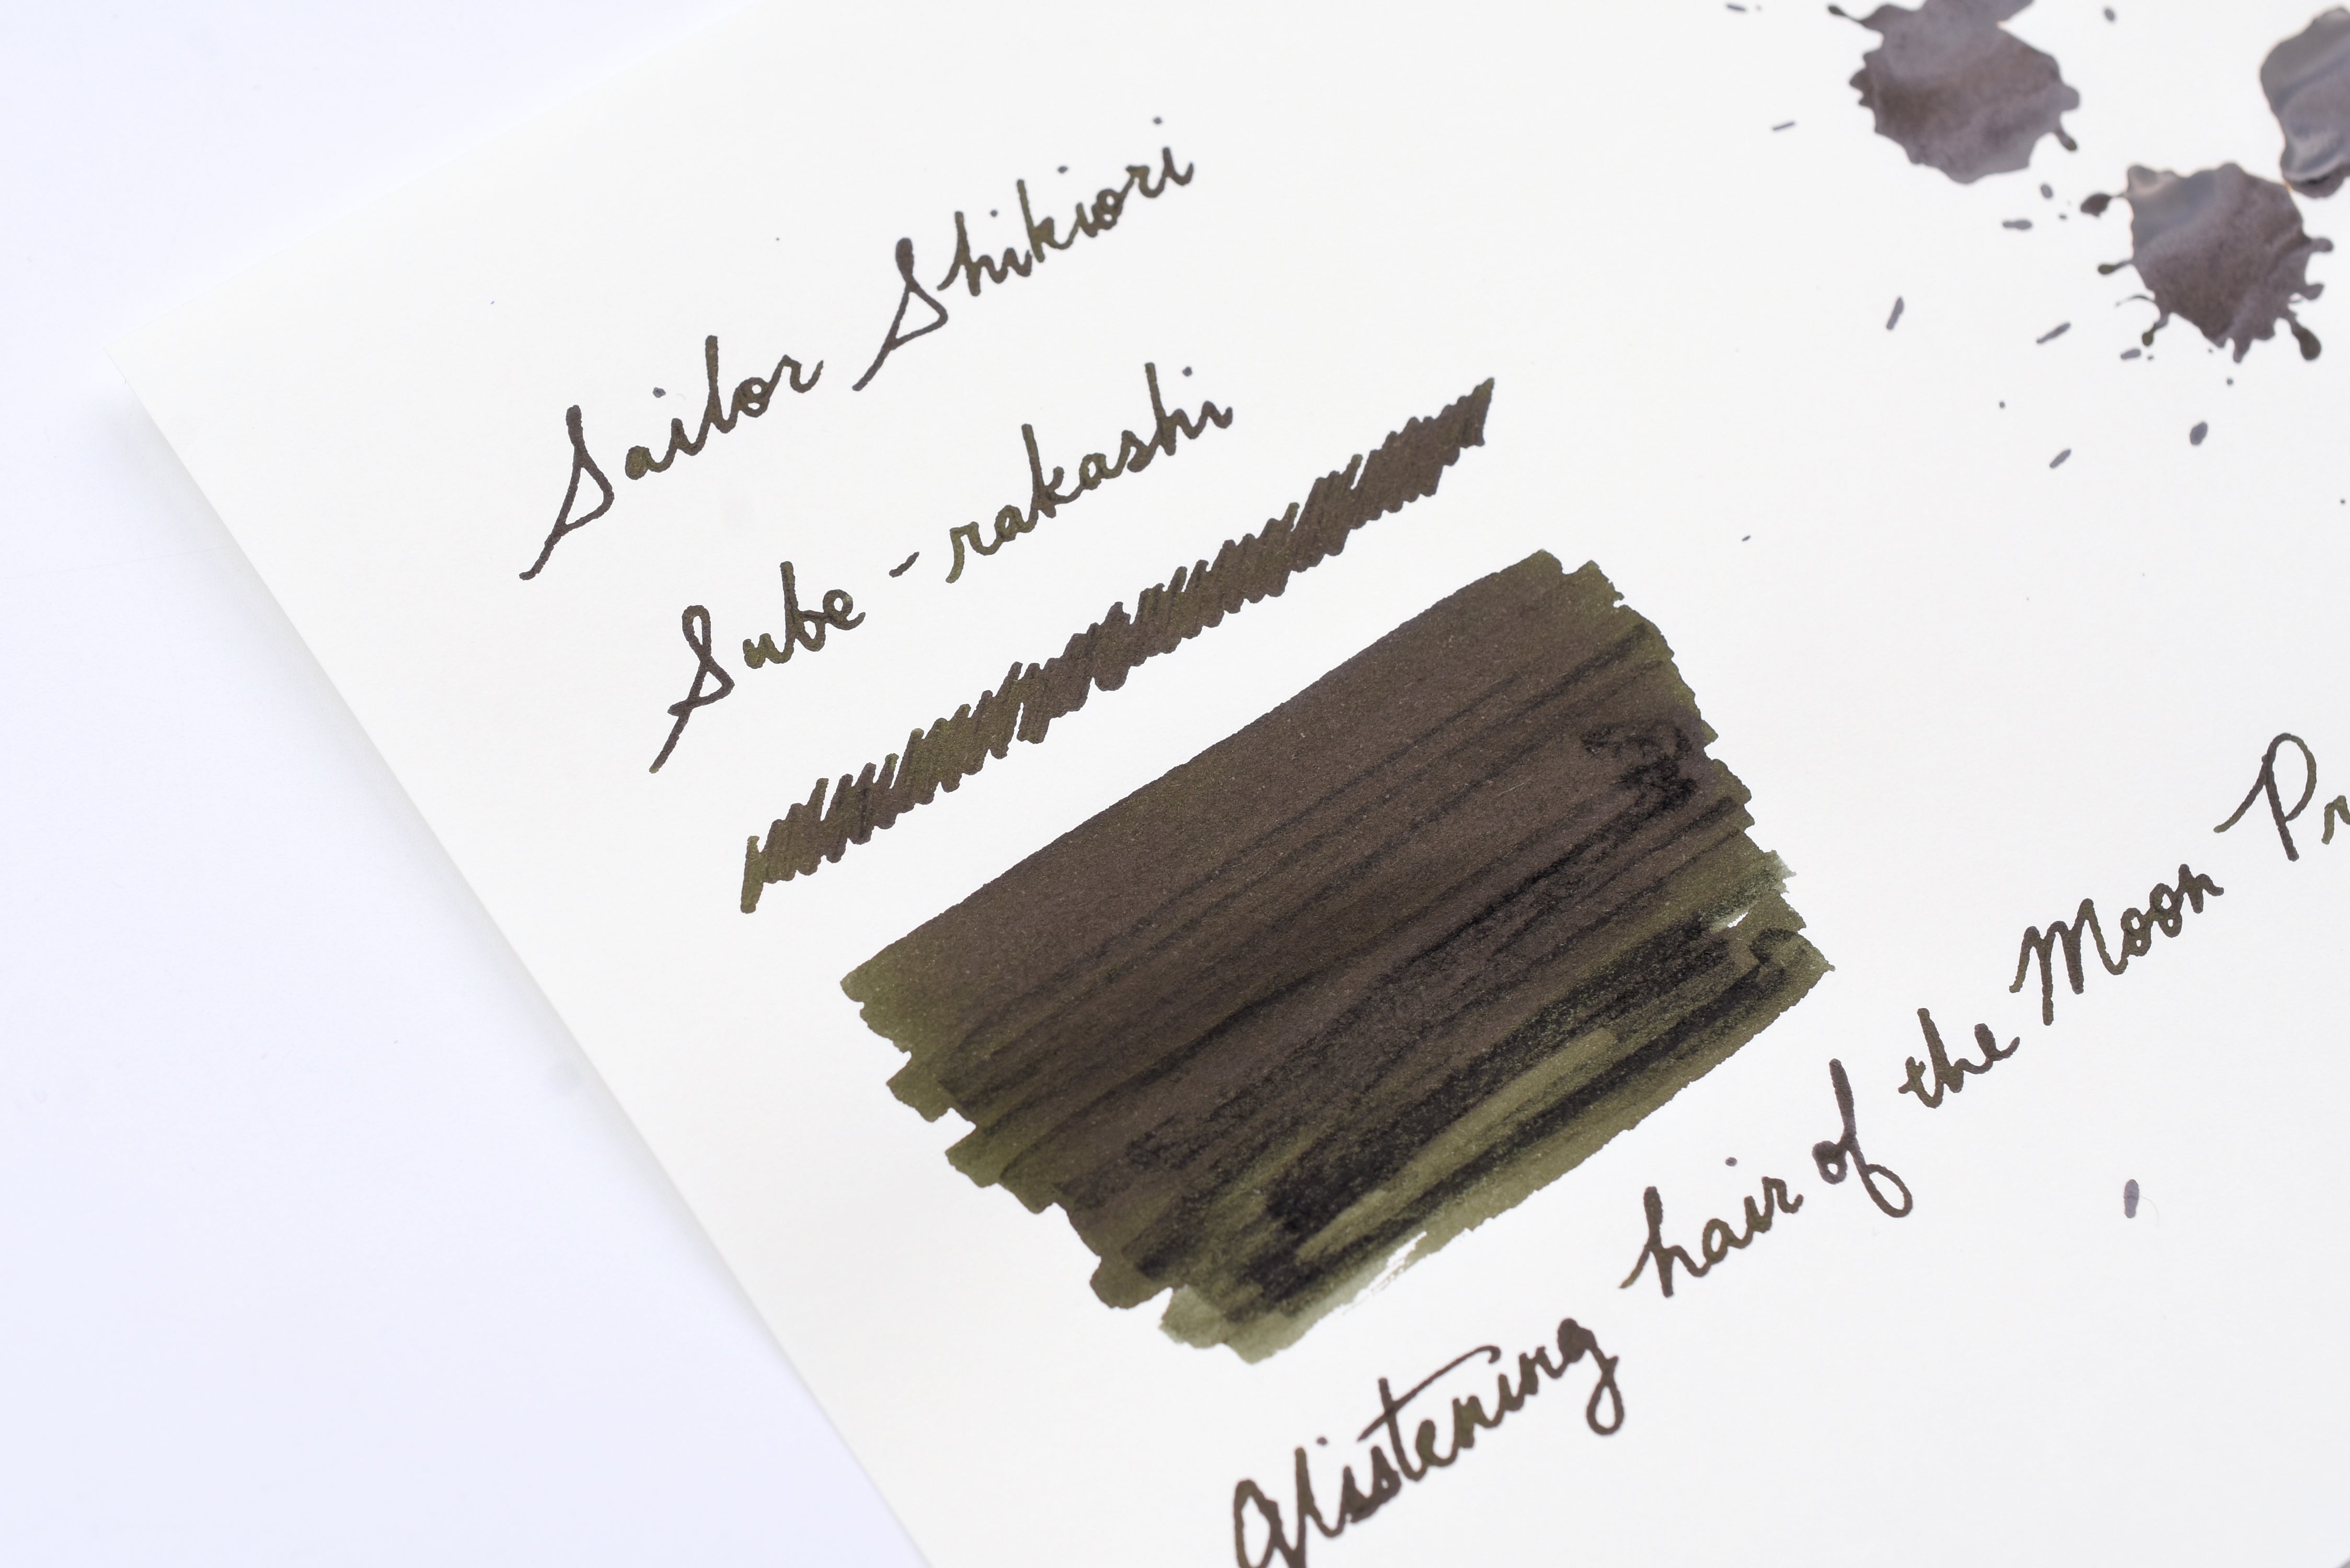 Sailor Shikiori
Sube-rakashi
Glistening hair of the Moon Pr